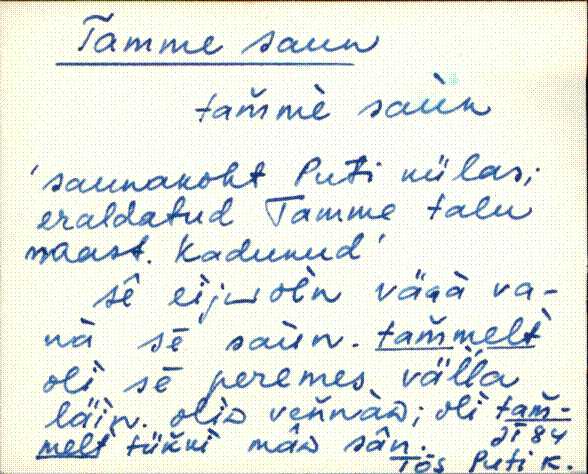 Tamme saun
tam̆mè saùn
'saunakoht Puti külas;
eraldatud Tamme talu
maast. Kadunud'
sê eij‿olǹ vägà va-
nà sē saùn. tam̆melt̀
olì sē peremes vällà
läìn. olìD vennàD; olì tam̆-
melt̀ tük̆kì mâD sân.
JT 84
Tõs Puti k.